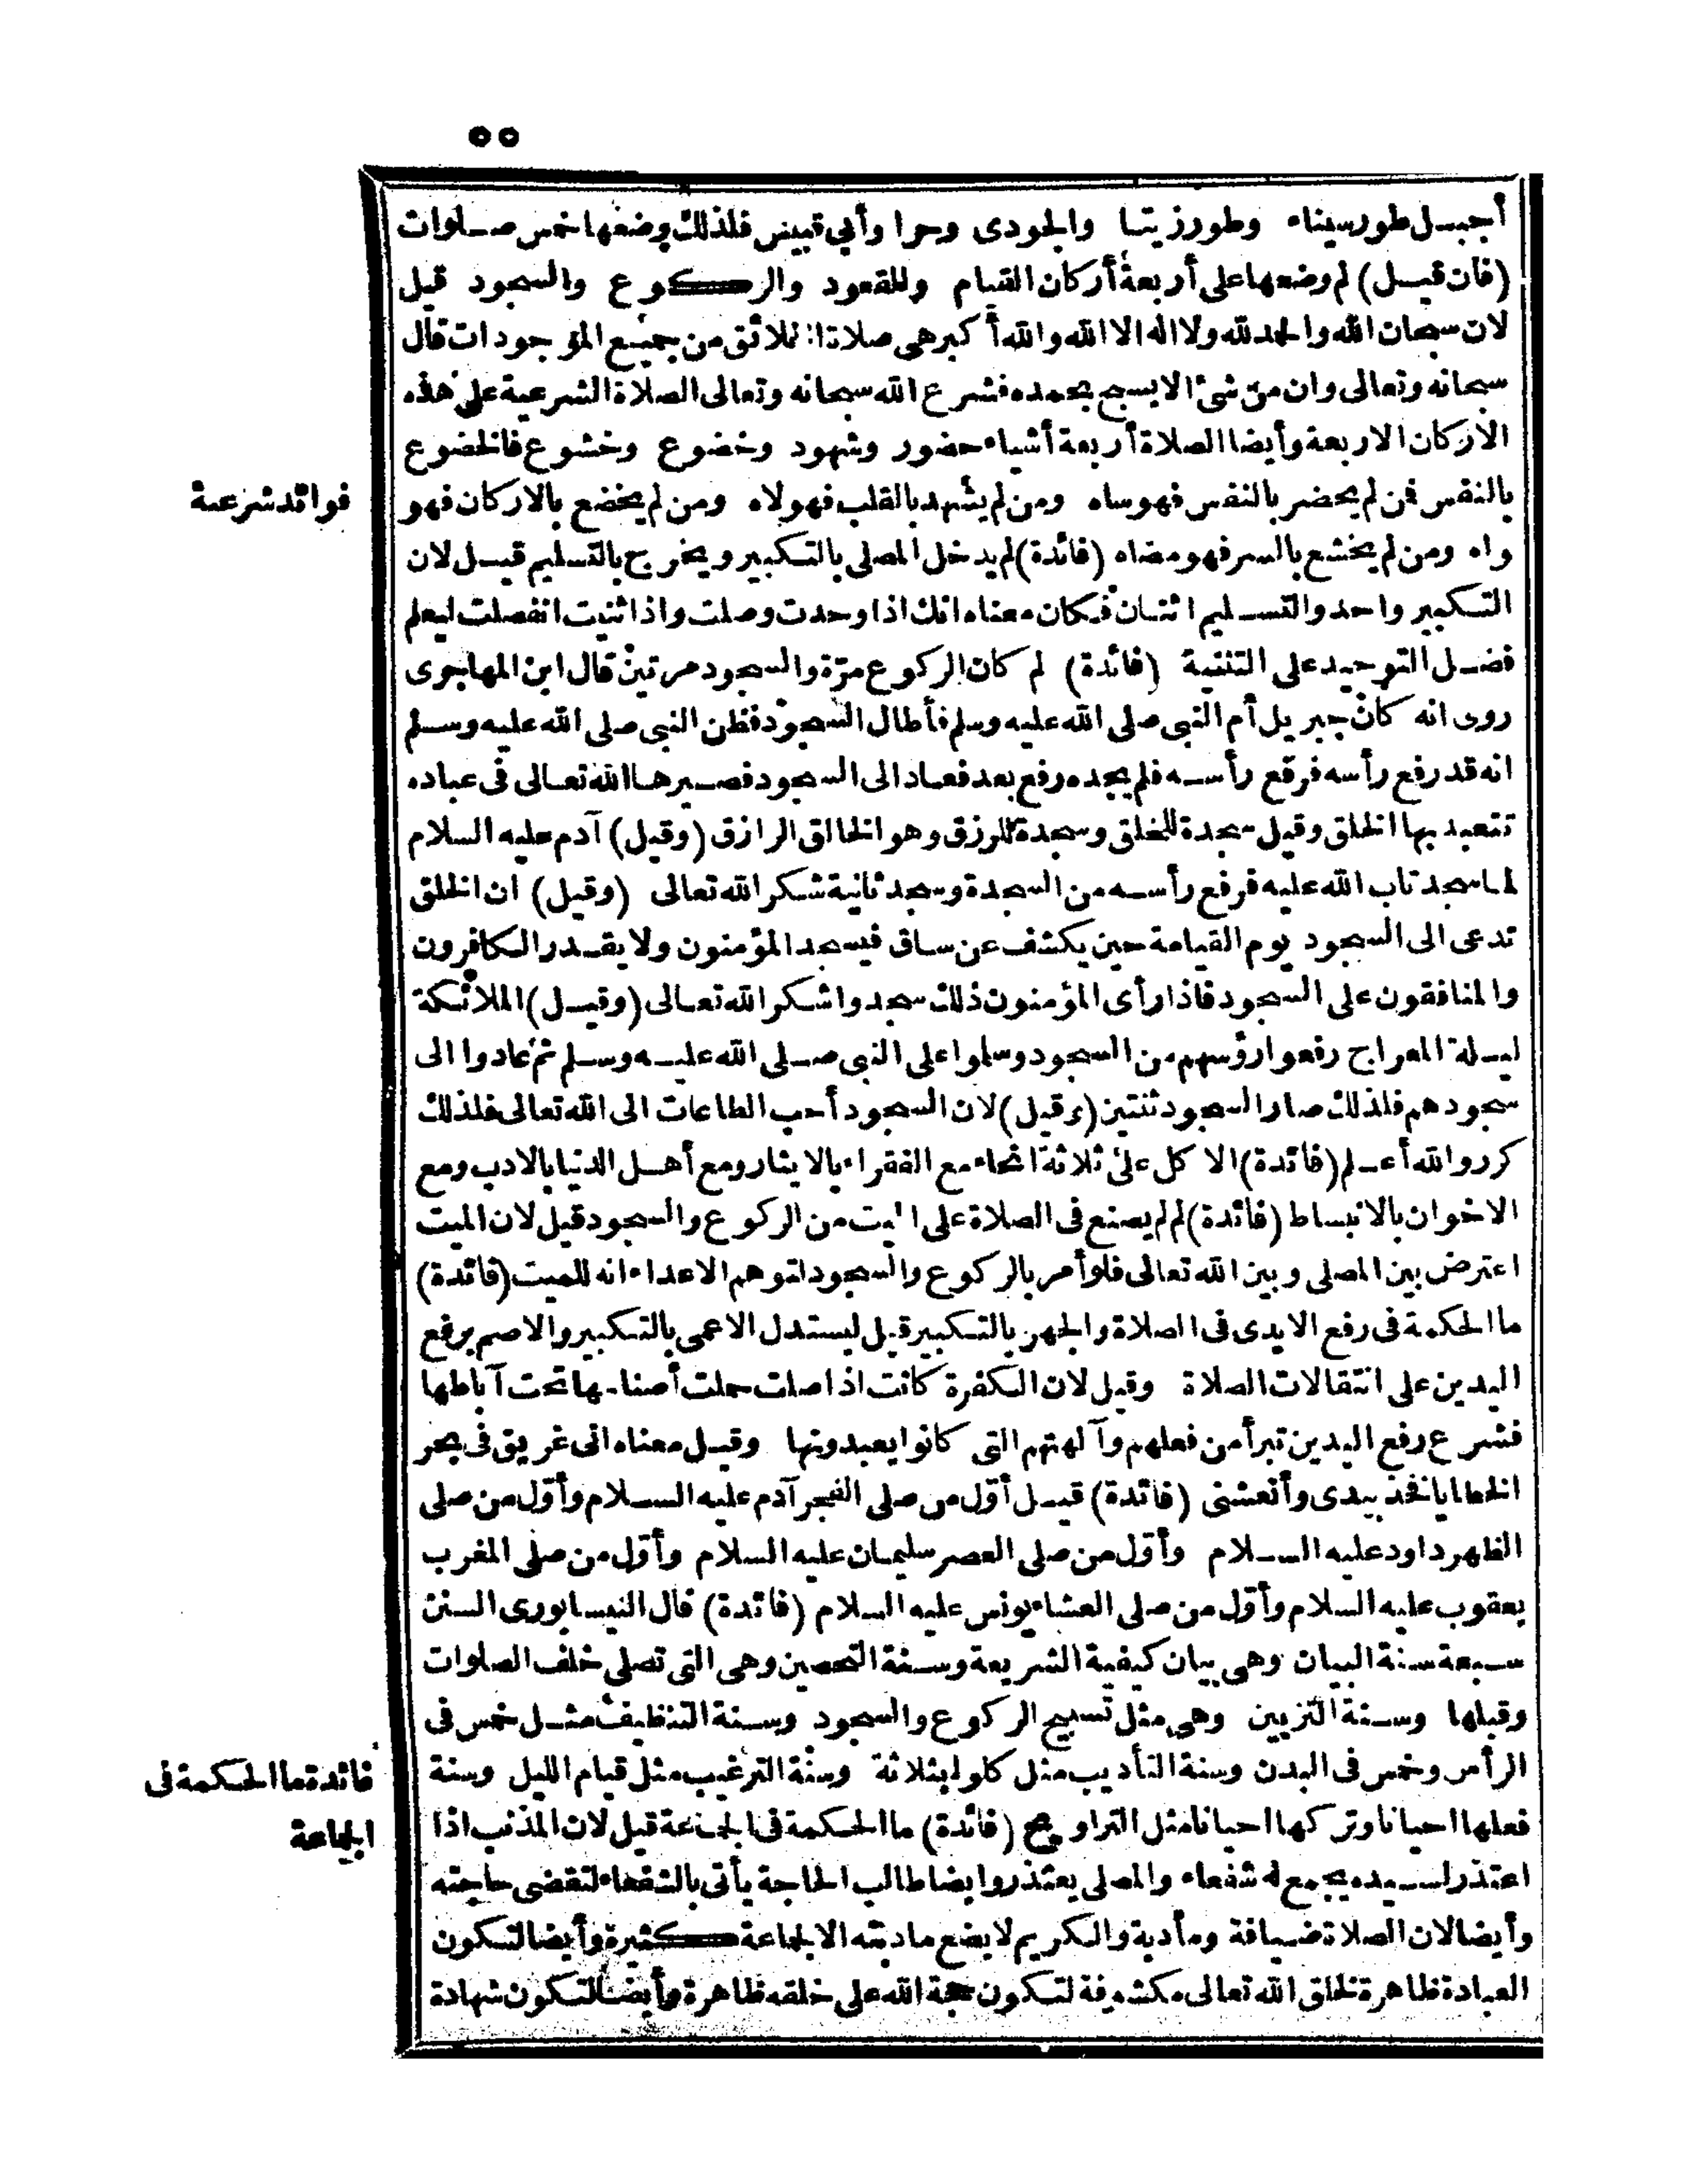 ٥٥
أجبل طورسيناء وطورزيتا والجودى وحرا وأبى قبيس فلذلك وضعها خمس صلوات
(فان قيل) لم وضعها على أربعة أركان القيام والقعود والركوع والسجود قيل
لان سبحان الله والحمد لله ولا اله الا الله والله أكبر هى صلاة الخلائق من جميع الموجودات قال
سبحانه وتعالى وان من شئ الا يسبح بحمده فشرع الله سبحانه وتعالى الصلاة الشرعية على هذه
الاركان الاربعة وأيضا الصلاة أربعة أشياء حضور وشهود وخضوع وخشوع فالخضوع
فوائد شرعية
بالنفس فن لم يحضر بالنفس فهو ساه ومن لم يشهد بالقلب فهو لاه ومن لم يخضع بالاركان فهو
واه ومن لم يخشع بالسر فهو مضاه (فائدة) لم يدخل المصلى بالتكبير ويخرج بالتسليم قيل لان
التكبير واحد والتسليم اثنان فكان معناه انك اذا وحدت وصلت واذا ثنيت انفصلت ليعلم
فضل التوحيد على التثنية (فائدة) لم كان الركوع مرّة والسجود مرتين قال ابن المهاجرى
روى انه كان جبريل أم النبى صلى الله عليه وسلم فأطال السجود فظن النبى صلى الله عليه وسلم
انه قد رفع رأسه فرفع رأسه فلم يجده رفع بعد فعاد الى السجود فصيرها الله تعالى فى عباده
تتعبد بها الخلق وقيل سجدة للخلق وسجدة للرزق وهو الخالق الرازق (وقيل) آدم عليه السلام
لما سجد تاب الله عليه فرفع رأسه من السجدة وسجد ثانية شكر الله تعالى (وقيل) ان الخلق
تدعى الى السجود يوم القيامة حين يكشف عن ساق فيسجد المؤمنون ولا يقدر الكافرون
والمنافقون على السجود فاذا رأى المؤمنون ذلك سجدوا شكر الله تعالى (وقيل) الملائكة
ليلة المعراج رفعوا رؤسهم من السجود وسلموا على النبى صلى الله عليه وسلم ثم عادوا الى
سجودهم فلذلك صار السجود ثنتين (وقيل) لان السجود أحب الطاعات الى الله تعالى فلذلك
كرر والله أعلم (فائدة) الاكل على ثلاثة انحاء مع الفقراء بالايثار ومع أهل الدنيا بالادب ومع
الاخوان بالانبساط (فائدة) لم لم يصنع فى الصلاة على الميت من الركوع والسجود قيل لان الميت
اعترض بين المصلى وبين الله تعالى فلو أمر بالركوع والسجود لتوهم الاعداء انه للميت (فائدة)
ما الحكمة فى رفع الايدى فى الصلاة والجهر بالتكبيرة قيل ليستدل الاعمى بالتكبير والاصم برفع
اليدين على انتقالات الصلاة وقيل لان الكفرة كانت اذا صلت حملت أصنامها تحت آباطها
فشرع رفع اليدين تبرأ من فعلهم وآلهتهم التى كانوا يعبدونها وقيل معناه انى غريق فى بحر
الخطايا فخذ بيدى وأنعشنى (فائدة) قيل أوّل من صلى الفجر آدم عليه السلام وأوّل من صلى
الظهر داود عليه السلام وأوّل من صلى العصر سليمان عليه السلام وأوّل من صلى المغرب
يعقوب عليه السلام وأوّل من صلى العشاء يونس عليه السلام (فائدة) قال النيسابورى السنن
سبعة سنة البيان وهى بيان كيفية الشريعة وسنة التحصين وهى التى تصلى خلف الصلوات
وقبلها وسنة التزيين وهى مثل تسبيح الركوع والسجود وسنة التنظيف مثل خمس فى
الرأس وخمس فى البدن وسنة التأديب مثل كلوا بثلاثة وسنة الترغيب مثل قيام الليل وسنة
فائدة ما الحكمة فى
الجماعة
فعلها احيانا وتركها احيانا مثل التراويح (فائدة) ما الحكمة فى الجماعة قيل لان المذنب اذا
اعتذر لسيده يجمع له شفعاء والمصلى يعتذر وايضا طالب الحاجة يأتى بالشفعاء لتقضى حاجته
وأيضا لان الصلاة ضيافة ومأدبة والكريم لا يضع مادبته الا لجماعة كثيرة وأيضا لتكون
العبادة ظاهرة لخلق الله تعالى مكشوفة لتكون حجة الله على خلقه ظاهرة وأيضا لتكون شهادة